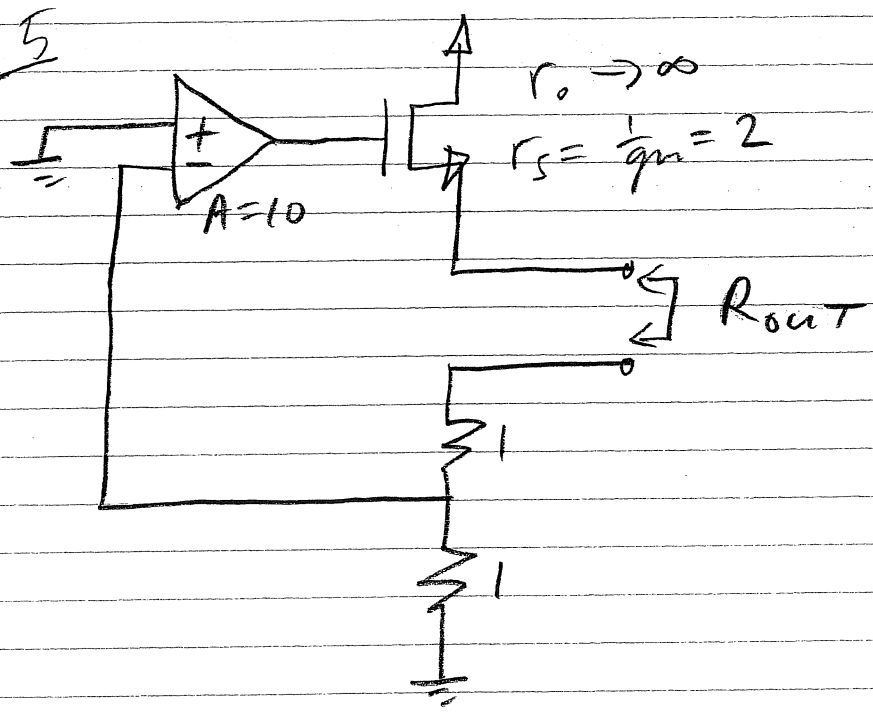 5
r₀ → ∞
+
r_s = 1/gm = 2
−
A=10
R_OUT
1
1